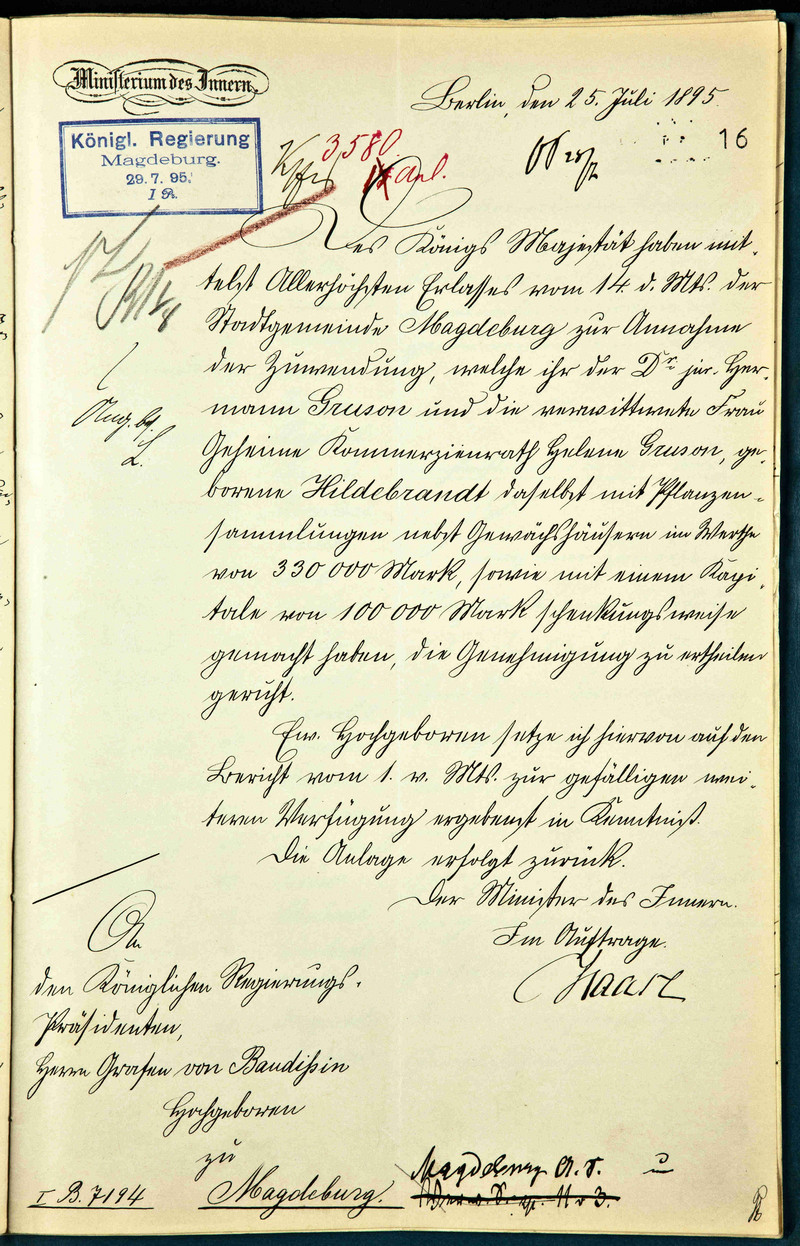 Ministerium des Innern.
Berlin, den 25. Juli 1895.
16
Königl. Regierung
Magdeburg.
29.7.95.
I R.
3580
Anl.
Des Königs Majestät haben mit-
telst Allerhöchsten Erlasses vom 14. d. Mts. der
Stadtgemeinde Magdeburg zur Annahme
der Zuwendung, welche ihr der Dr. jur. Her-
mann Gruson und die verwittwete Frau
Geheime Kommerzienrath Helene Gruson, ge-
borene Hildebrandt daselbst mit Pflanzen-
sammlungen nebst Gewächshäusern im Werthe
von 330 000 Mark, sowie mit einem Kapi-
tale von 100 000 Mark schenkungsweise
gemacht haben, die Genehmigung zu ertheilen
geruht.
Ew. Hochgeboren setze ich hiervon auf den
Bericht vom 1. v. Mts. zur gefälligen wei-
teren Verfügung ergebenst in Kenntniß.
Die Anlage erfolgt zurück.
Der Minister des Innern.
Im Auftrage.
Haase
An
den Königlichen Regierungs-
Präsidenten,
Herrn Grafen von Baudißin
Hochgeboren
zu
Magdeburg.
I B. 7194
Magdeburg